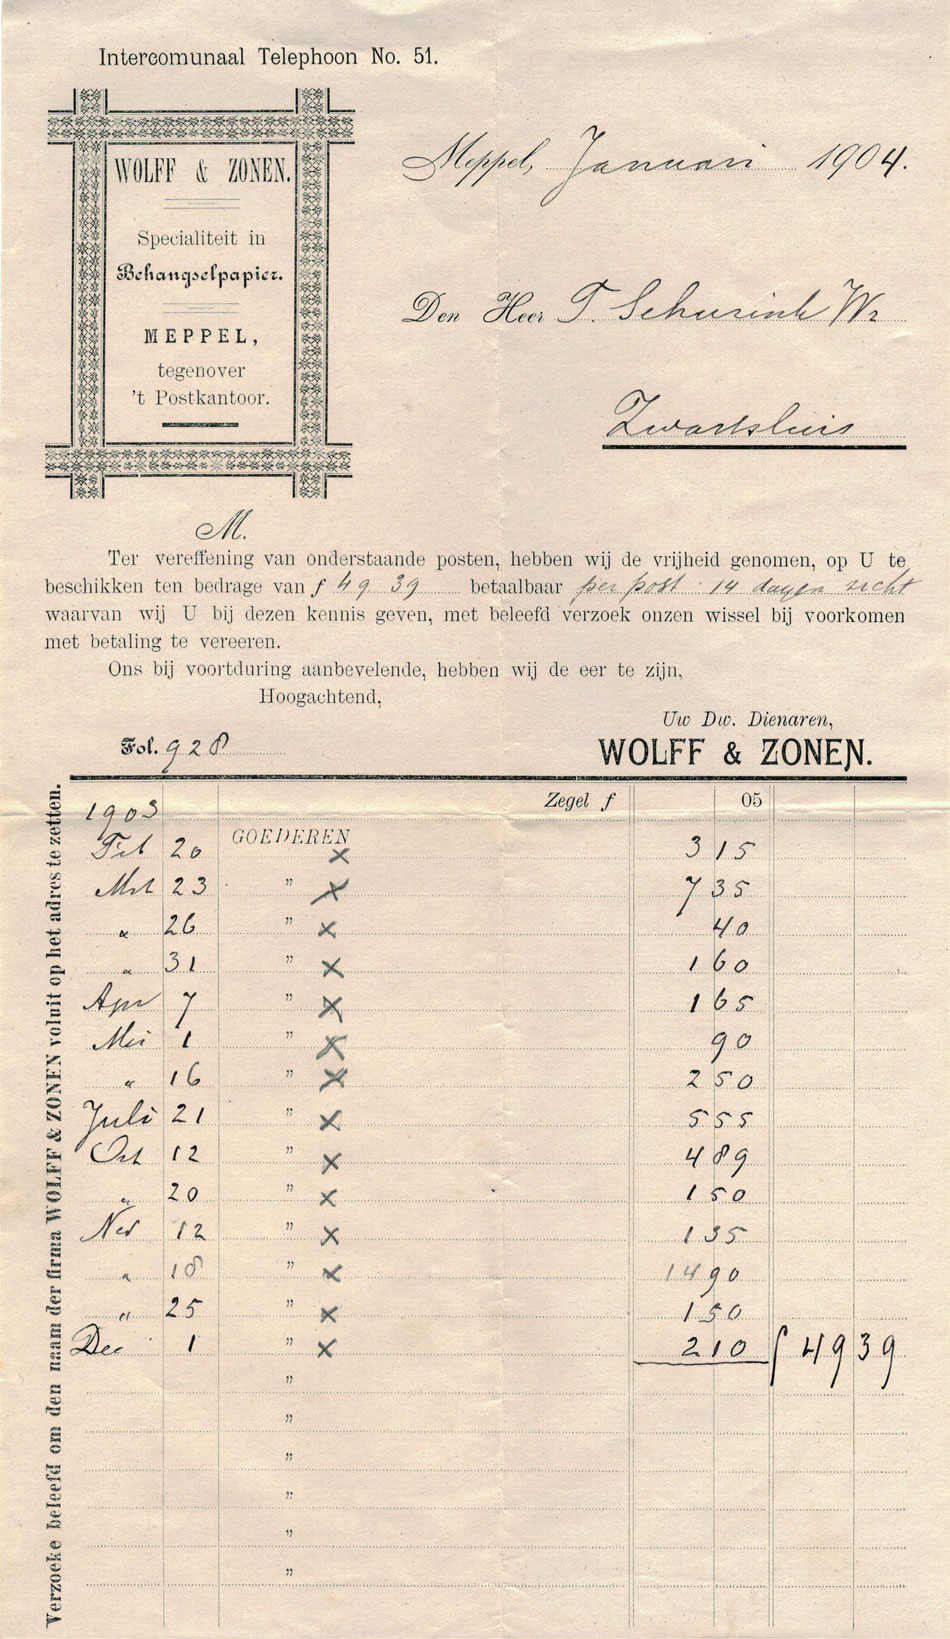 Intercomunaal Telephoon No. 51.
WOLFF & ZONEN.
Specialiteit in
Behangselpapier.
MEPPEL,
tegenover
't Postkantoor.
Meppel, Januari 1904.
Den Heer T. Schurink Wz
Zwartsluis
M.
Ter vereffening van onderstaande posten, hebben wij de vrijheid genomen, op U te
beschikken ten bedrage van ƒ 49 39 betaalbaar per post 14 dagen zicht
waarvan wij U bij dezen kennis geven, met beleefd verzoek onzen wissel bij voorkomen
met betaling te vereeren.
Ons bij voortduring aanbevelende, hebben wij de eer te zijn,
Hoogachtend,
Uw Dw. Dienaren,
Fol. 928
WOLFF & ZONEN.
Verzoeke beleefd om den naam der firma WOLFF & ZONEN voluit op het adres te zetten.
1903 Zegel ƒ 05
Feb 20 GOEDEREN × 3 15
Mrt 23 " × 7 35
" 26 " × 40
" 31 " × 1 60
Apr 7 " × 1 65
Mei 1 " × 90
" 16 " × 2 50
Juli 21 " × 5 55
Oct 12 " × 4 89
" 20 " × 1 50
Nov 12 " × 1 35
" 18 " × 14 90
" 25 " × 1 50
Dec 1 " × 2 10 ƒ 49 39
"
"
"
"
"
"